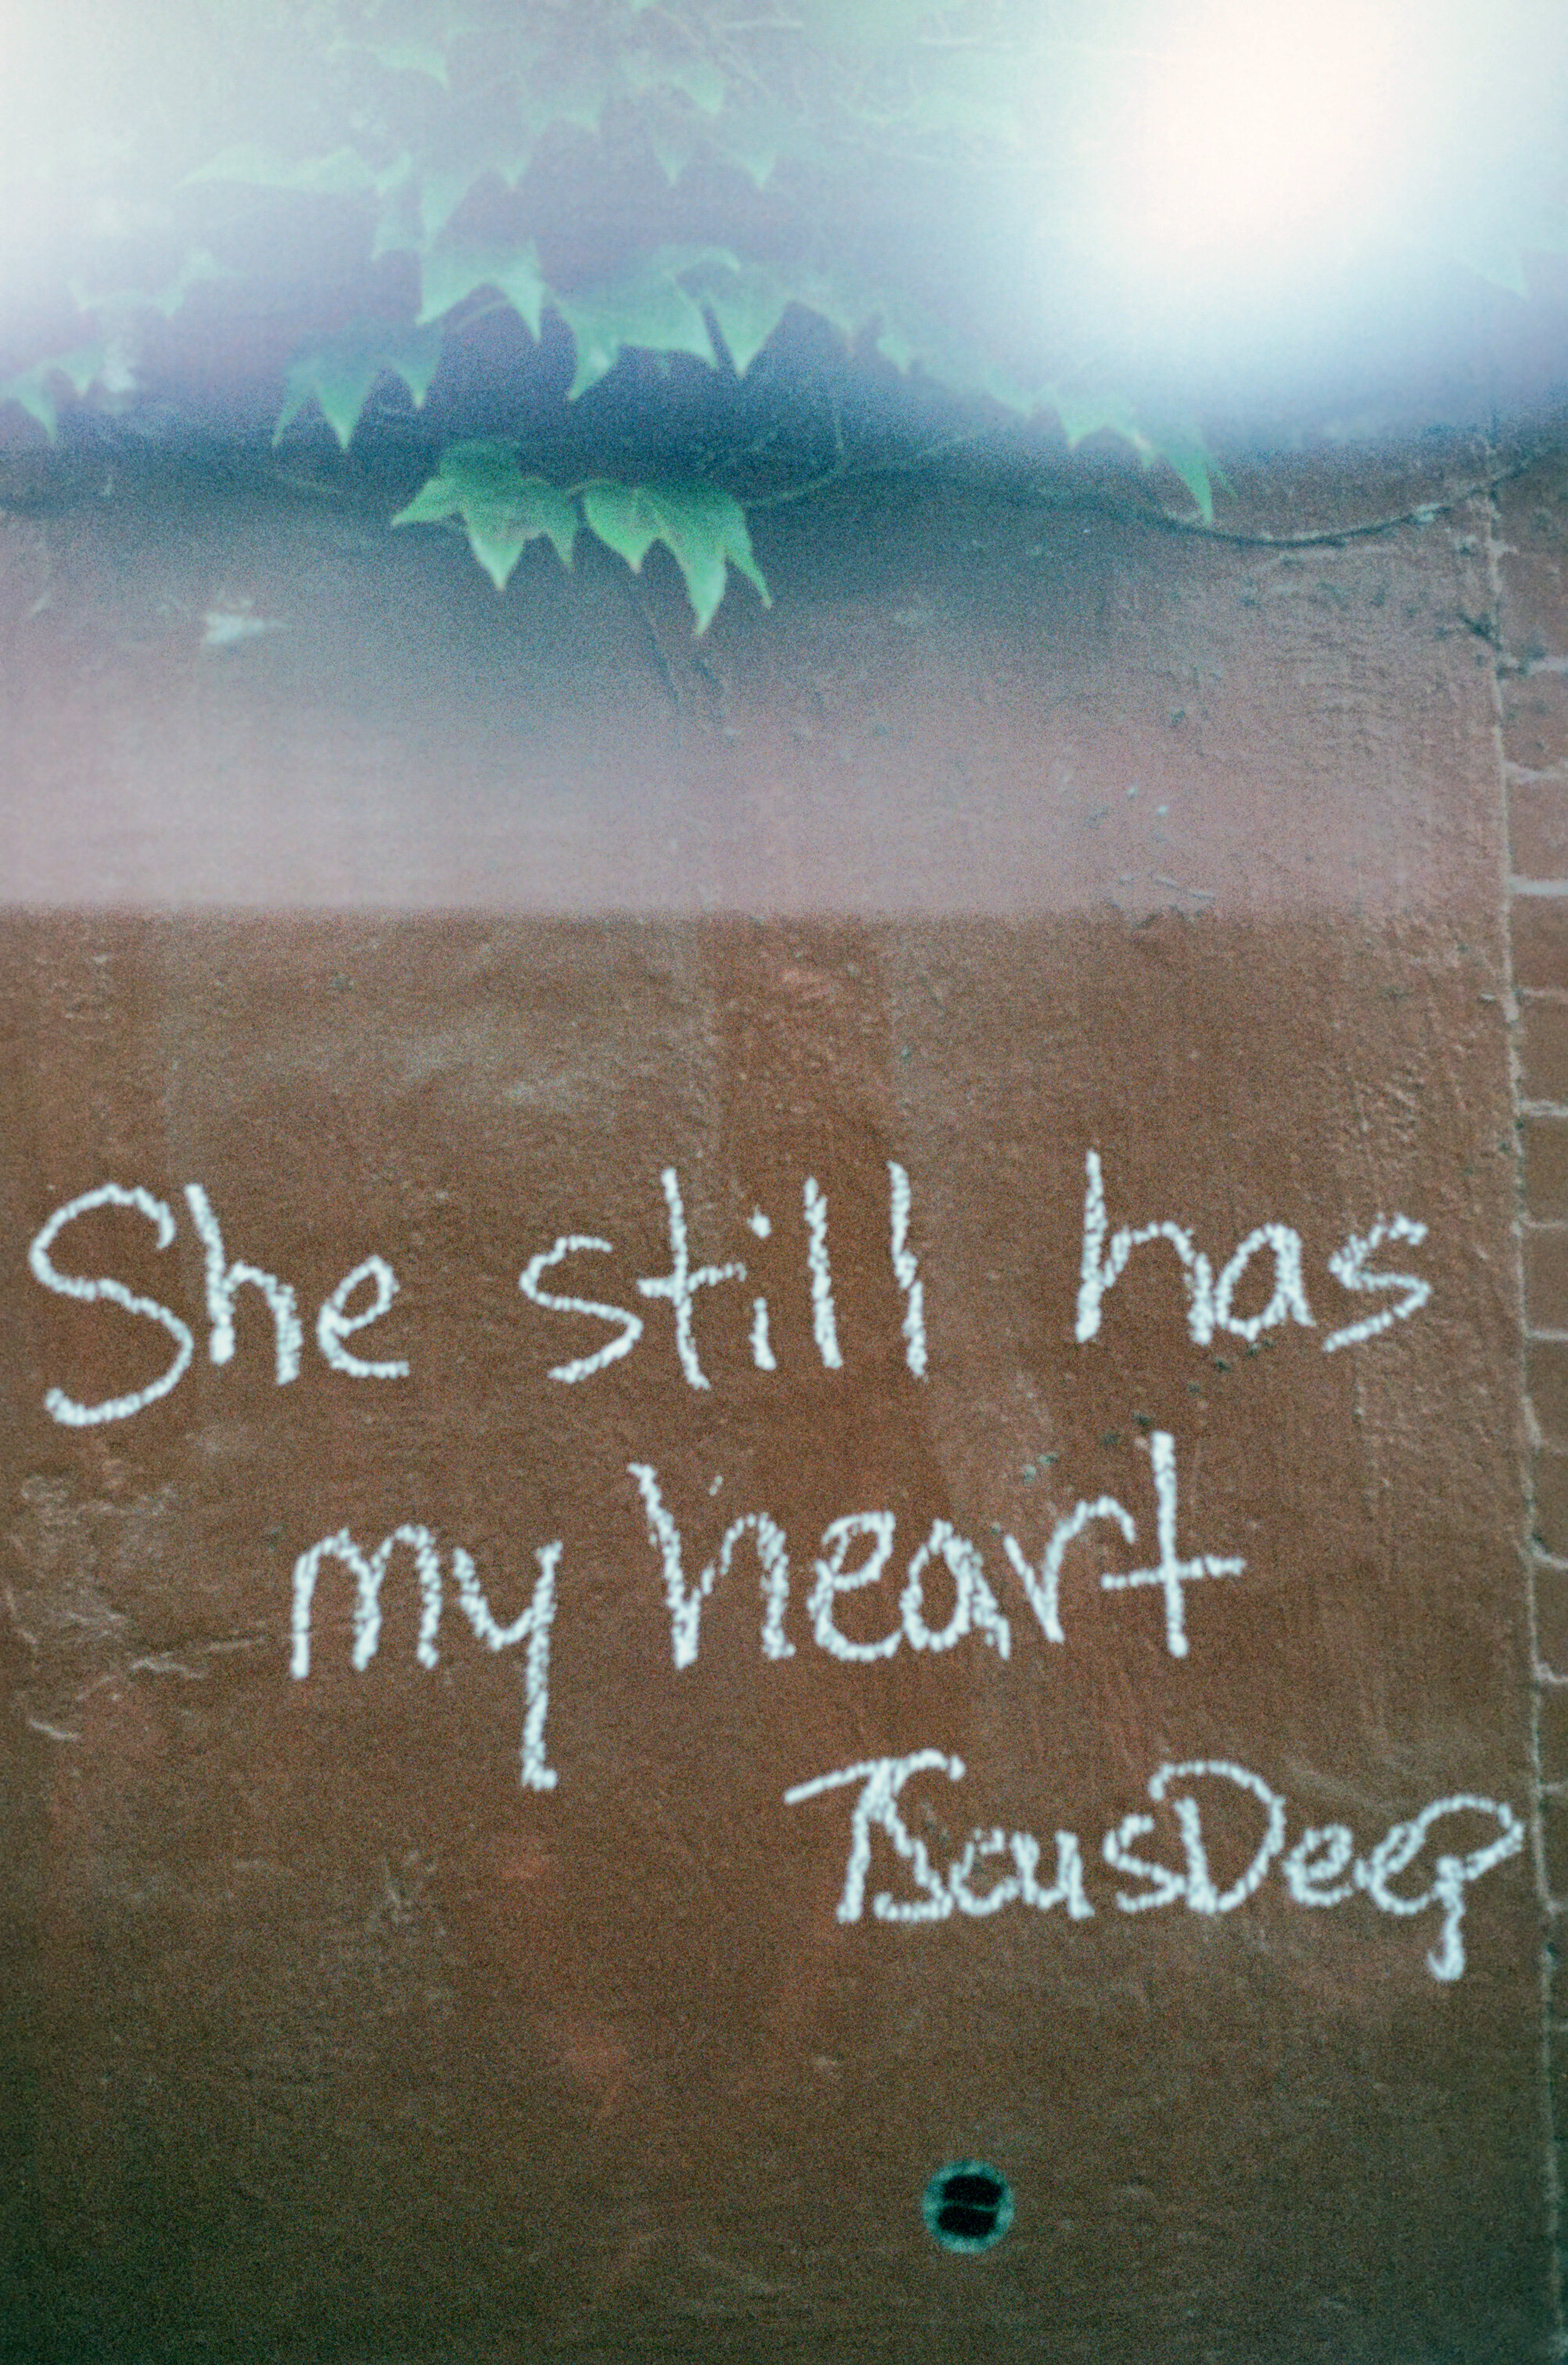 She still has
my heart